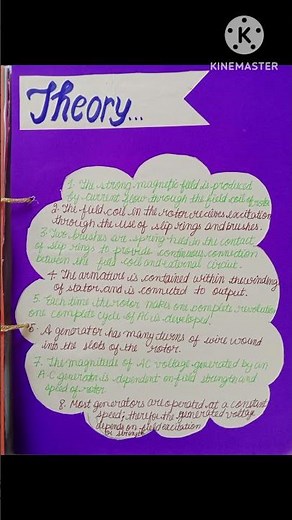 KINEMASTER
Theory...
1. The strong magnetic field is produced
by current flow through the field coil of rotor
2. The field coil in the rotor receives excitation
through the use of slip rings and brushes.
3. Two brushes are spring held in the contact
of slip rings to provide continuous connection
between the field coil and external circuit.
4. The armature is contained within the winding
of stator and is connected to output.
5. Each time the rotor make one complete revolution
one complete cycle of AC is developed.
6 A generator has many turns of wire wound
into the slots of the rotor.
7. The magnitude of AC voltage generated by an
A.C generator is dependent on field strength and
speed of rotor
8. Most generators are operated at a constant
speed; therefore the generated voltage
depends on field excitation
or strength